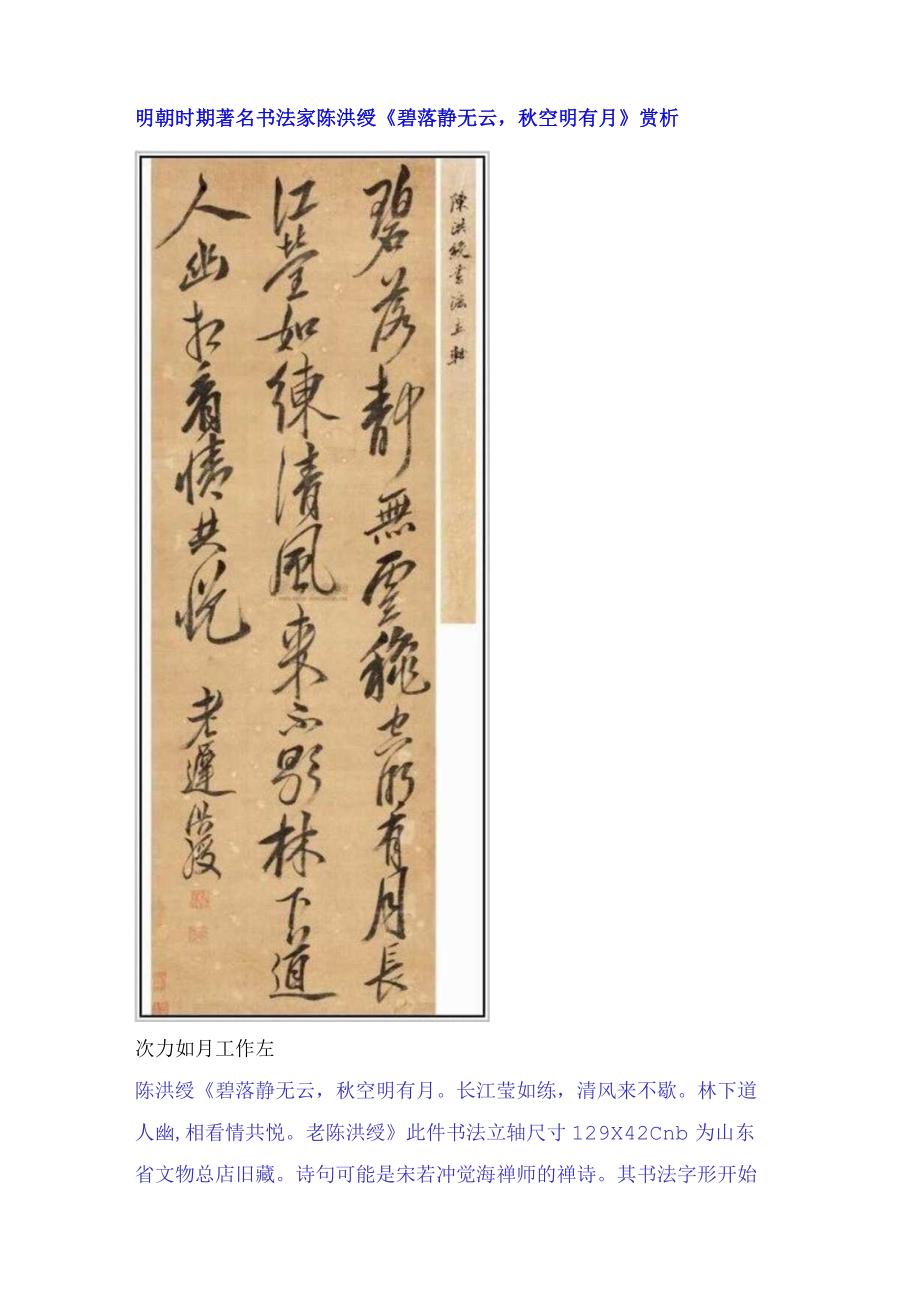 明朝时期著名书法家陈洪绶《碧落静无云，秋空明有月》赏析
陳洪綬書法立軸
碧落靜無雲秋空明有月長
江瑩如練清風來不歇林下道
人幽相看情共悦
老遲洪綬
次力如月工作左
陈洪绶《碧落静无云，秋空明有月。长江莹如练，清风来不歇。林下道
人幽,相看情共悦。老陈洪绶》此件书法立轴尺寸129X42Cnb为山东
省文物总店旧藏。诗句可能是宋若冲觉海禅师的禅诗。其书法字形开始